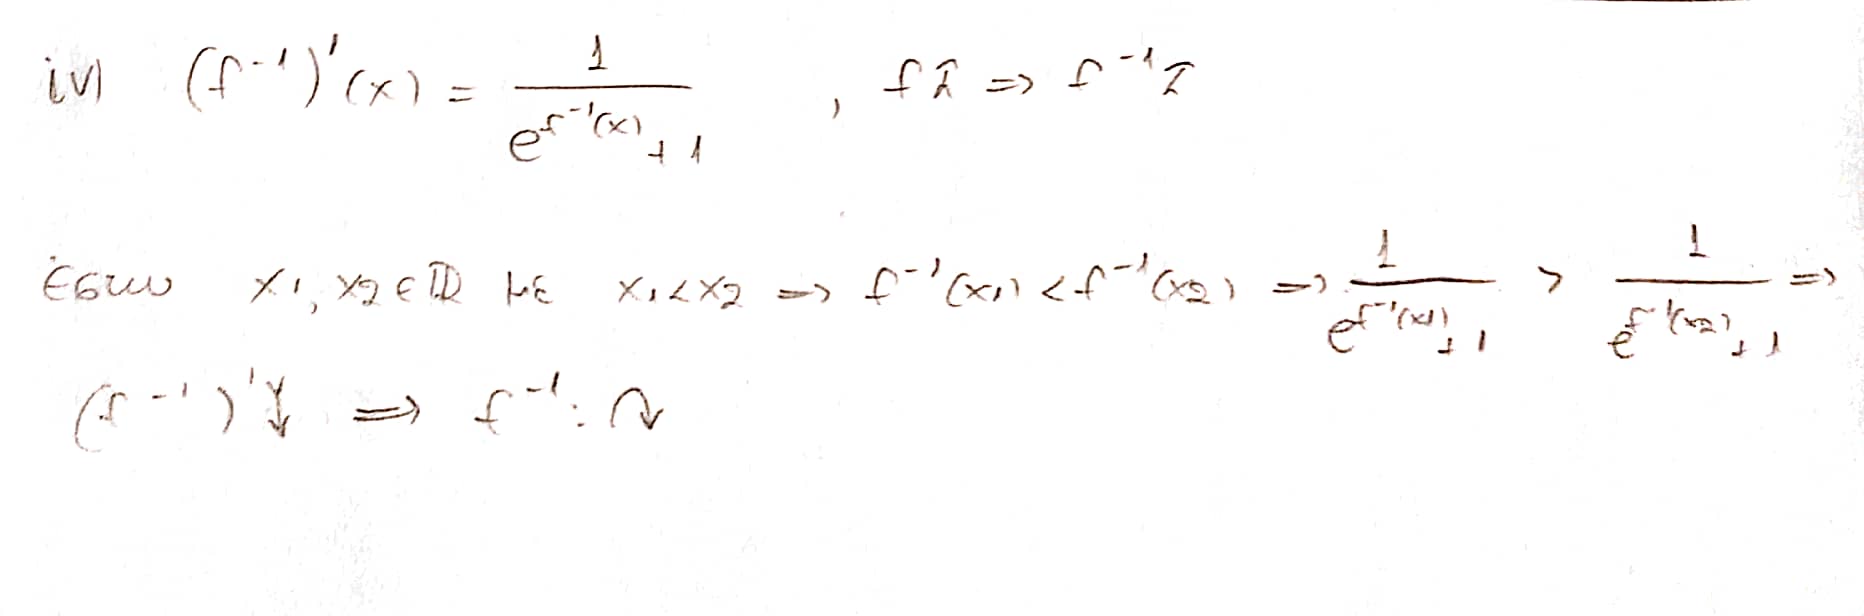 iv) (f⁻¹)'(x) = 1/(e^(f⁻¹(x)) + 1) , f↑ => f⁻¹↑
έστω x₁, x₂ ∈ ℝ με x₁ < x₂ => f⁻¹(x₁) < f⁻¹(x₂) => 1/(e^(f⁻¹(x₁)) + 1) > 1/(e^(f⁻¹(x₂)) + 1) =>
(f⁻¹)'↓ => f⁻¹: ↷